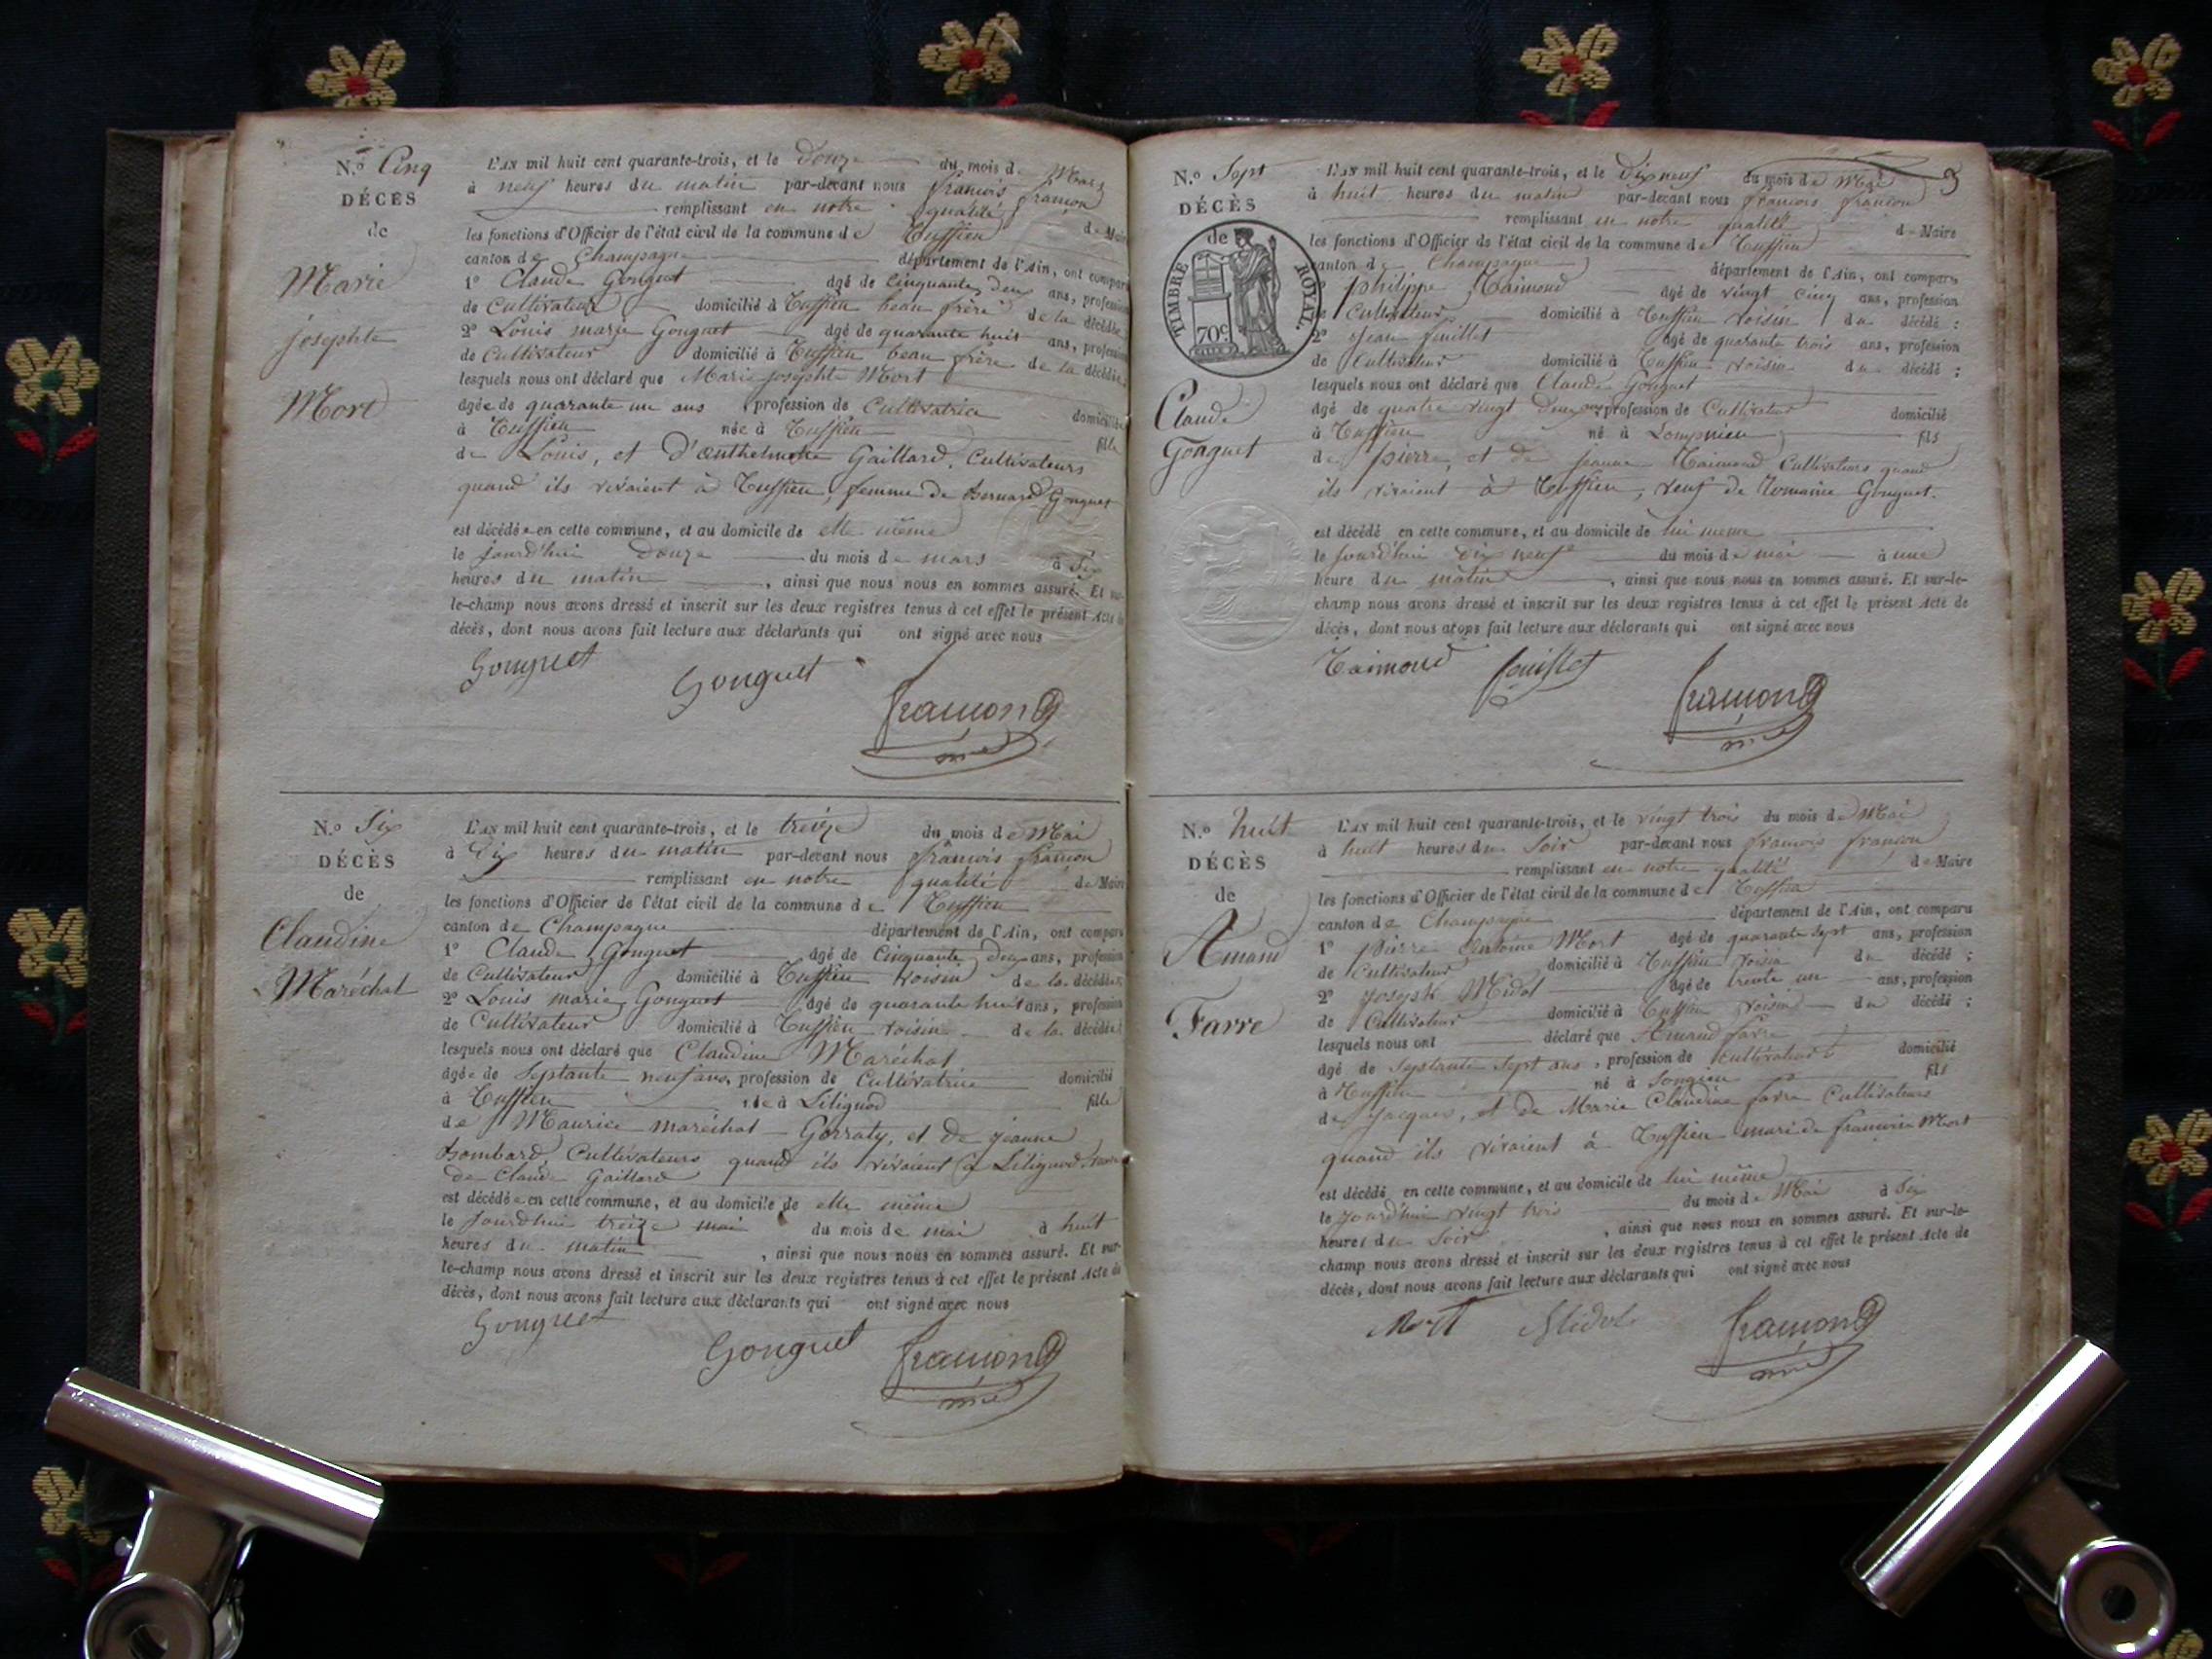 N.º Cinq
DÉCÈS
de
Marie
josephte
Mort
L'an mil huit cent quarante-trois, et le Douze du mois de Mars
à neuf heures du matin par-devant nous françois françon
remplissant en notre qualité de Maire
les fonctions d'Officier de l'état civil de la commune de Tuffieu
canton de Champagne département de l'Ain, ont comparu
1º Claude Gonguet agé de Cinquante Deux ans, profession
de Cultivateur domicilié à Tuffieu beau frère de la décédée
2º Louis marie Gonguet agé de quarante huit ans, profession
de Cultivateur domicilié à Tuffieu beau frère de la décédée;
lesquels nous ont déclaré que Marie josephte Mort
agée de quarante un ans profession de Cultivatrice domiciliée
à Tuffieu née à Tuffieu fille
de Louis, et D'Anthelmette Gaillard, Cultivateurs
quand ils vivaient à Tuffieu, femme de Bernard Gonguet
est décédée en cette commune, et au domicile de elle même
le jourd'hui Douze du mois de mars à Six
heures du matin, ainsi que nous nous en sommes assuré. Et sur-
le-champ nous avons dressé et inscrit sur les deux registres tenus à cet effet le présent Acte de
décès, dont nous avons fait lecture aux déclarants qui ont signé avec nous
Gonguet Gonguet françon
N.º Six
DÉCÈS
de
Claudine
Maréchal
L'an mil huit cent quarante-trois, et le treize du mois de Mai
à Dix heures du matin par-devant nous françois françon
remplissant en notre qualité de Maire
les fonctions d'Officier de l'état civil de la commune de Tuffieu
canton de Champagne département de l'Ain, ont comparu
1º Claude Gonguet agé de Cinquante Deux ans, profession
de Cultivateur domicilié à Tuffieu voisin de la décédée
2º Louis marie Gonguet agé de quarante huit ans, profession
de Cultivateur domicilié à Tuffieu voisin de la décédée
lesquels nous ont déclaré que Claudine Maréchal
agée de Septante neuf ans, profession de Cultivatrice domicilié
à Tuffieu née à Lilignod fille
de Maurice maréchal Gorraty, et De jeanne
Bombard, Cultivateurs quand ils vivaient à Lilignod
de Claude Gaillard
est décédée en cette commune, et au domicile de elle même
le jourd'hui treize mai du mois de mai à huit
heures du matin, ainsi que nous nous en sommes assuré. Et sur-
le-champ nous avons dressé et inscrit sur les deux registres tenus à cet effet le présent Acte de
décès, dont nous avons fait lecture aux déclarants qui ont signé avec nous
Gonguet Gonguet françon
N.º Sept
DÉCÈS
de
TIMBRE ROYAL.
70c
Claude
Gonguet
L'an mil huit cent quarante-trois, et le Dix neuf du mois de Mai
à huit heures du matin par-devant nous françois françon
remplissant en notre qualité de Maire
les fonctions d'Officier de l'état civil de la commune de Tuffieu
canton de Champagne département de l'Ain, ont comparu
philippe Taimond agé de vingt cinq ans, profession
Cultivateur domicilié à Tuffieu voisin du décédé;
2º jean fouillet agé de quarante trois ans, profession
de Cultivateur domicilié à Tuffieu voisin du décédé;
lesquels nous ont déclaré que Claude Gonguet
agé de quatre vingt Deux ans profession de Cultivateur domicilié
à Tuffieu né à Lompnieu fils
de pierre, et de jeanne Taimond Cultivateurs quand
ils vivaient à Tuffieu, veuf de Romaine Gonguet.
est décédé en cette commune, et au domicile de lui même
le jourd'hui Dix neuf du mois de mai à une
heure du matin, ainsi que nous nous en sommes assuré. Et sur-le-
champ nous avons dressé et inscrit sur les deux registres tenus à cet effet le présent Acte de
décès, dont nous avons fait lecture aux déclarants qui ont signé avec nous
Taimond fouillet françon
N.º huit
DÉCÈS
de
Amand
Favre
L'an mil huit cent quarante-trois, et le vingt trois du mois de Mai
à huit heures du Soir par-devant nous françois françon
remplissant en notre qualité de Maire
les fonctions d'Officier de l'état civil de la commune de Tuffieu
canton de Champagne département de l'Ain, ont comparu
1º pierre Antoine Mort agé de quarante sept ans, profession
de Cultivateur domicilié à Tuffieu voisin du décédé;
2º joseph Midol agé de trente un ans, profession
de Cultivateur domicilié à Tuffieu voisin du décédé;
lesquels nous ont déclaré que Amand favre
agé de Septante Sept ans, profession de Cultivateur domicilié
à Tuffieu né à Songieu fils
de jacques, et de Marie Claudine favre Cultivateurs
quand ils vivaient à Tuffieu mari de françoise Mort
est décédé en cette commune, et au domicile de lui même
le jourd'hui vingt trois du mois de Mai à Six
heures du Soir, ainsi que nous nous en sommes assuré. Et sur-le-
champ nous avons dressé et inscrit sur les deux registres tenus à cet effet le présent Acte de
décès, dont nous avons fait lecture aux déclarants qui ont signé avec nous
Mort Midol françon